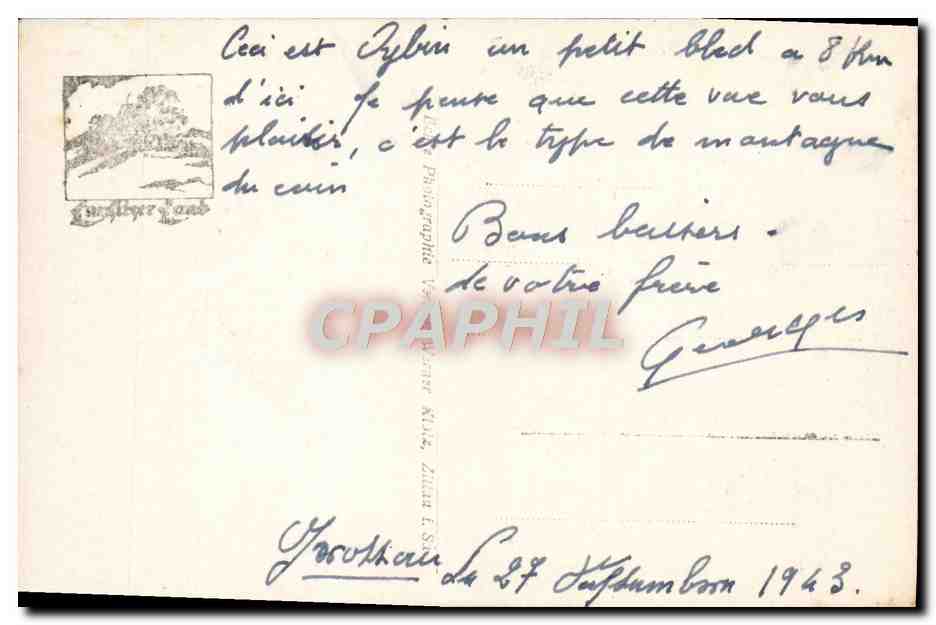 Ceci est Oybin un petit bled a 8 Km
d'ici Je pense que cette vue vous
plaisir, c'est le type de montagne
du coin
Bons baisers.
de votre frère
Georges
CPAPHIL
Photographie Werner Klotz, Zittau i. Sa.
Grottau Le 27 Septembre 1943.